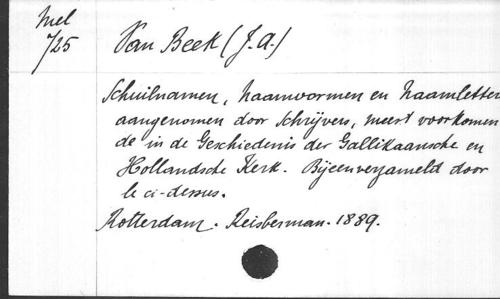 Mel
725
Van Beek (J.A.)
Schuilnamen, Naamvormen en Naamletters
aangenomen door Schrijvers, meest voorkomen
de in de Geschiedenis der Gallikaansche en
Hollandsche Kerk. Bijeenverzameld door
le ci-dessus.
Rotterdam. Reisberman. 1889.